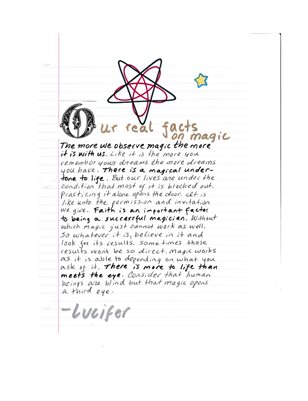 Our real facts
on magic
The more we observe magic the more
it is with us. Like it is the more you
remember your dreams the more dreams
you have. There is a magical under-
tone to life. But our lives are under the
condition that most of it is blocked out.
Practicing it alone opens the door. Let is
like unto the permission and invitation
we give. Faith is an important factor
to being a successful magician. Without
which magic just cannot work as well.
So whatever it is, believe in it and
look for its results. Some times those
results wont be so direct. Magic works
as it is able to depending on what you
ask of it. There is more to life than
meets the eye. Consider that human
beings are blind but that magic opens
a third eye.
-Lucifer